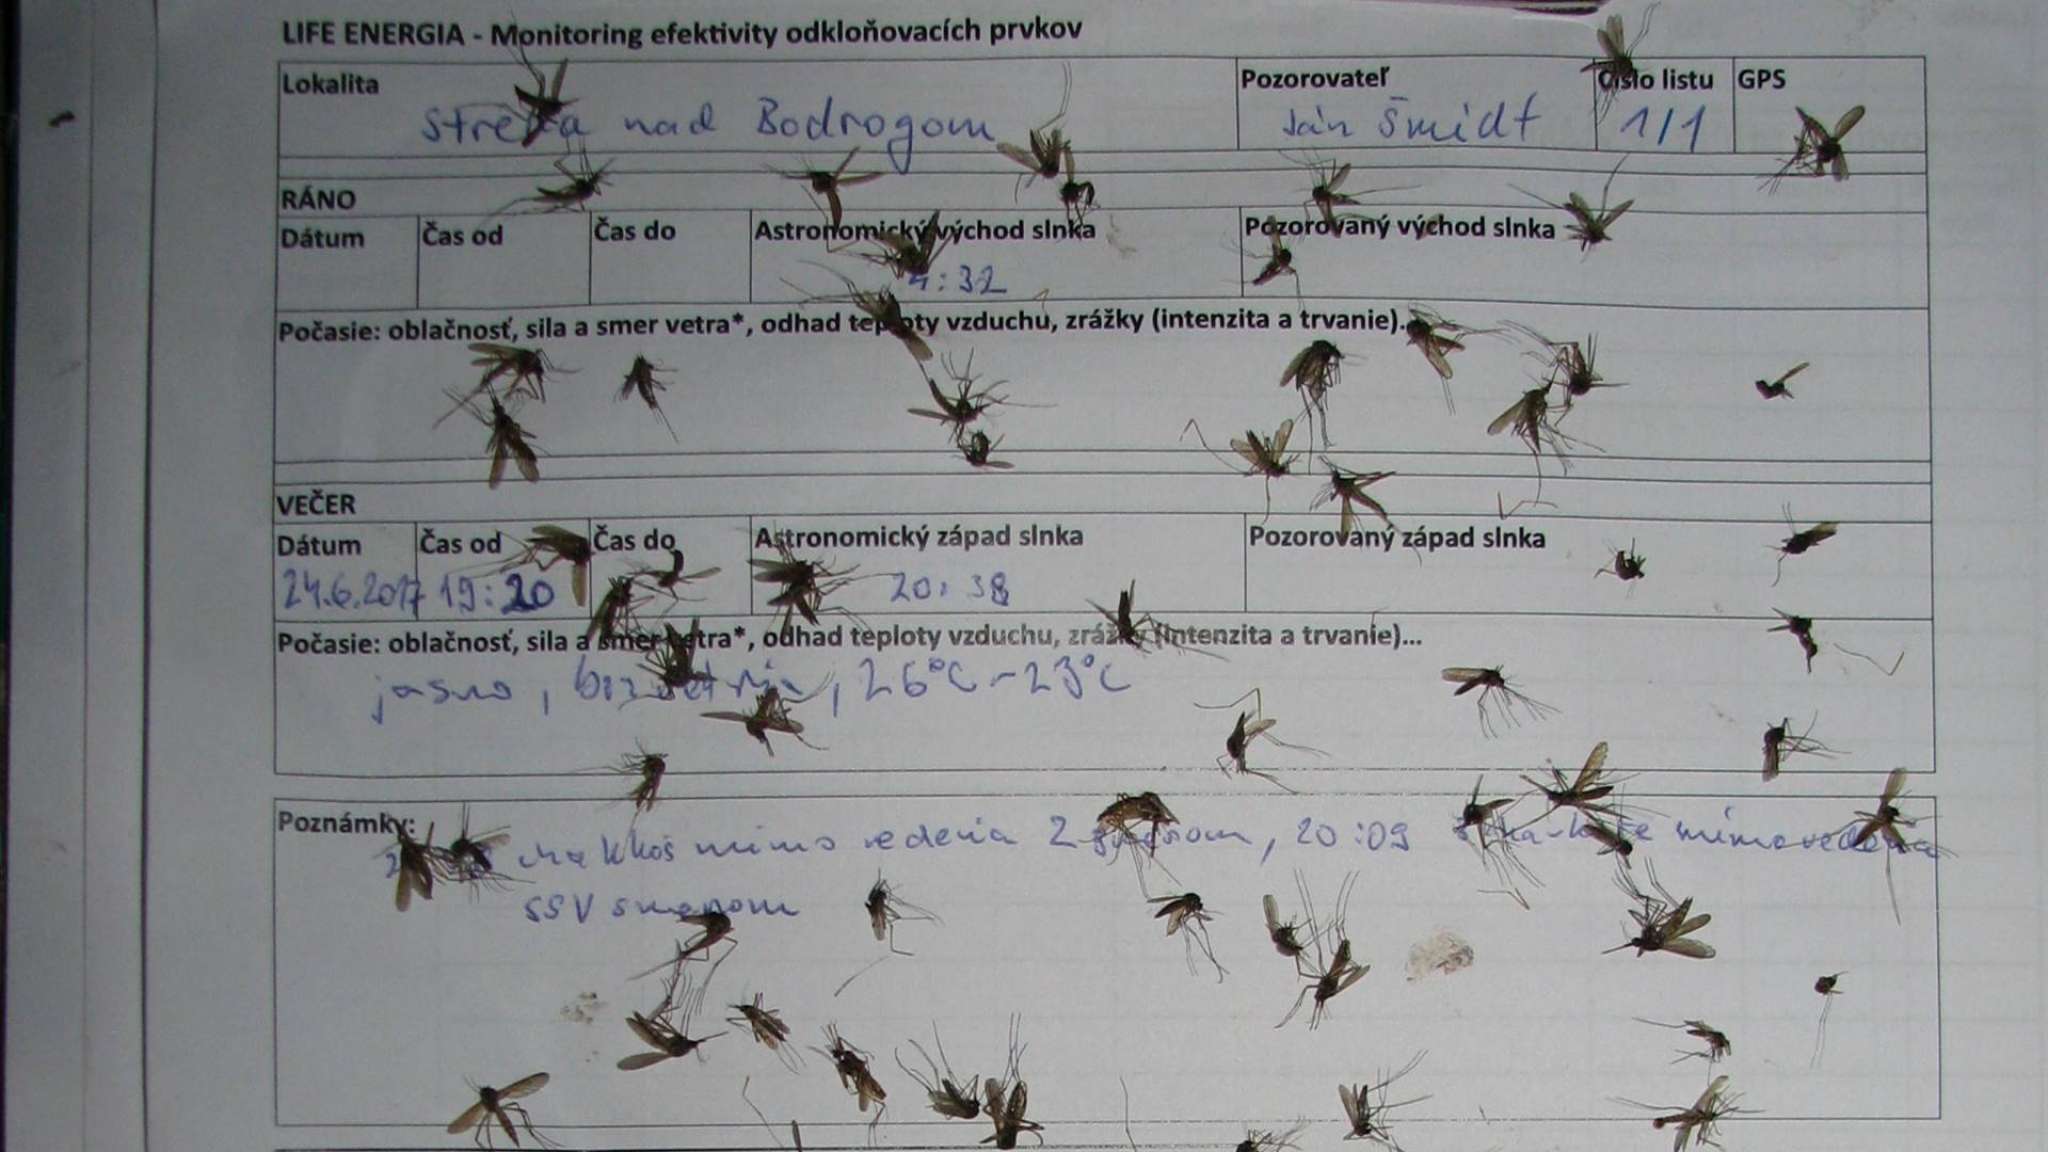 LIFE ENERGIA - Monitoring efektivity odkloňovacích prvkov
Lokalita Pozorovateľ Číslo listu GPS
Streda nad Bodrogom Ján Šmidt 1/1
RÁNO
Dátum Čas od Čas do Astronomický východ slnka Pozorovaný východ slnka
4:32
Počasie: oblačnosť, sila a smer vetra*, odhad teploty vzduchu, zrážky (intenzita a trvanie)...
VEČER
Dátum Čas od Čas do Astronomický západ slnka Pozorovaný západ slnka
24.6.2017 19:20 20:38
Počasie: oblačnosť, sila a smer vetra*, odhad teploty vzduchu, zrážky (intenzita a trvanie)...
jasno, bezvetrie, 26°C-23°C
Poznámky:
mimo vedenia 20:09 mimo vedenia
SSV smerom